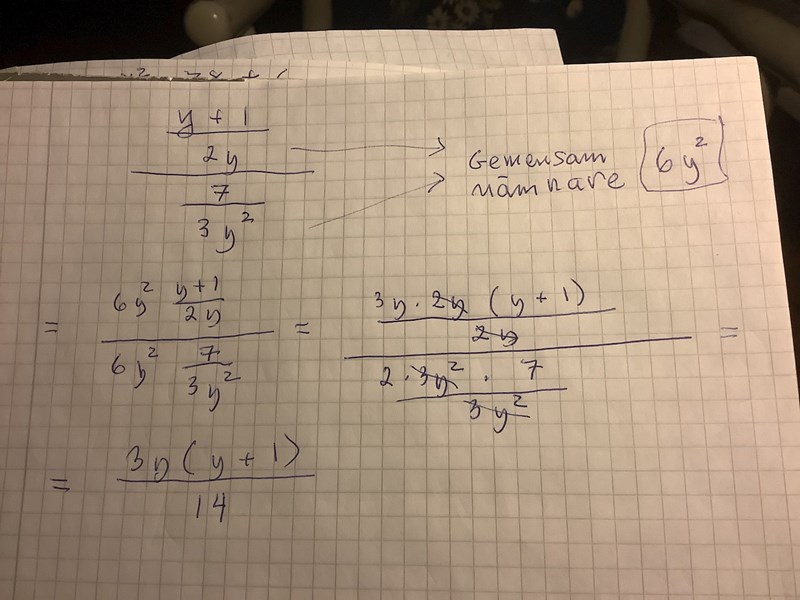 y + 1
2y
7
3y²
Gemensam
nämnare 6y²
= 6y² y+1
2y
6y² 7
3y²
= 3y · 2y (y + 1)
2y
2 · 3y² · 7
3y²
=
= 3y (y + 1)
14